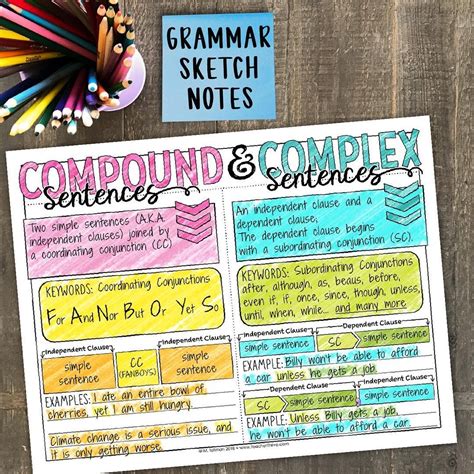 GRAMMAR
SKETCH
NOTES
COMPOUND & COMPLEX
Sentences
Sentences
Two simple sentences (A.K.A.
independent clauses) joined by
a coordinating conjunction (CC)
KEYWORDS: Coordinating Conjunctions
For And Nor But Or Yet So
Independent Clause
Independent Clause
simple
sentence
CC
(FANBOYS)
simple
sentence
EXAMPLES: I ate an entire bowl of
cherries, yet I am still hungry.
Climate change is a serious issue, and
it is only getting worse.
An independent clause and a
dependent clause;
The dependent clause begins
with a subordinating conjunction
(SC).
KEYWORDS: Subordinating Conjunctions
after, although, as, beaus, before,
even if, if, once, since, though, unless,
until, when, where.... and many more
Independent Clause
Dependent Clause
simple sentence SC simple sentence
EXAMPLE: Billy won't be able to afford
a car unless he gets a job.
Dependent Clause
Independent Clause
SC simple sentence , simple sentence
EXAMPLE: Unless Billy gets a job,
he won't be able to afford a car.